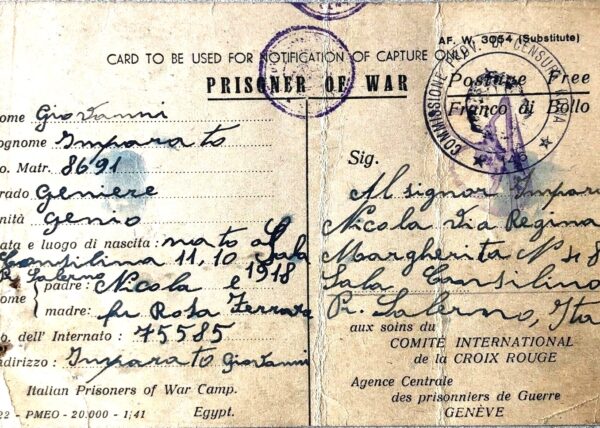 AF. W. 3054 (Substitute)
CARD TO BE USED FOR NOTIFICATION OF CAPTURE ONLY
PRISONER OF WAR
ome Giovanni
ognome Imparato
o. Matr. 8691
rado Geniere
nità Genio
ata e luogo di nascita: nato a Sala
Consilina 11, 10 1918
Pr Salerno
ome
padre: Nicola e
madre: fu Rosa Ferrara
o. dell' Internato: 75585
ndirizzo: Imparato Giovanni
Italian Prisoners of War Camp.
22 - PMEO - 20.000 - 1;41 Egypt.
COMMISSIONE PROV. DI CENSURA
Postage Free
Franco di Bollo
Sig.
Al signor Impara
Nicola Via Regina
Margherita N 48
Sala Consilino
Pr. Salerno, Ita
aux soins du
COMITÉ INTERNATIONAL
de la CROIX ROUGE
Agence Centrale
des prisonniers de Guerre
GENÈVE